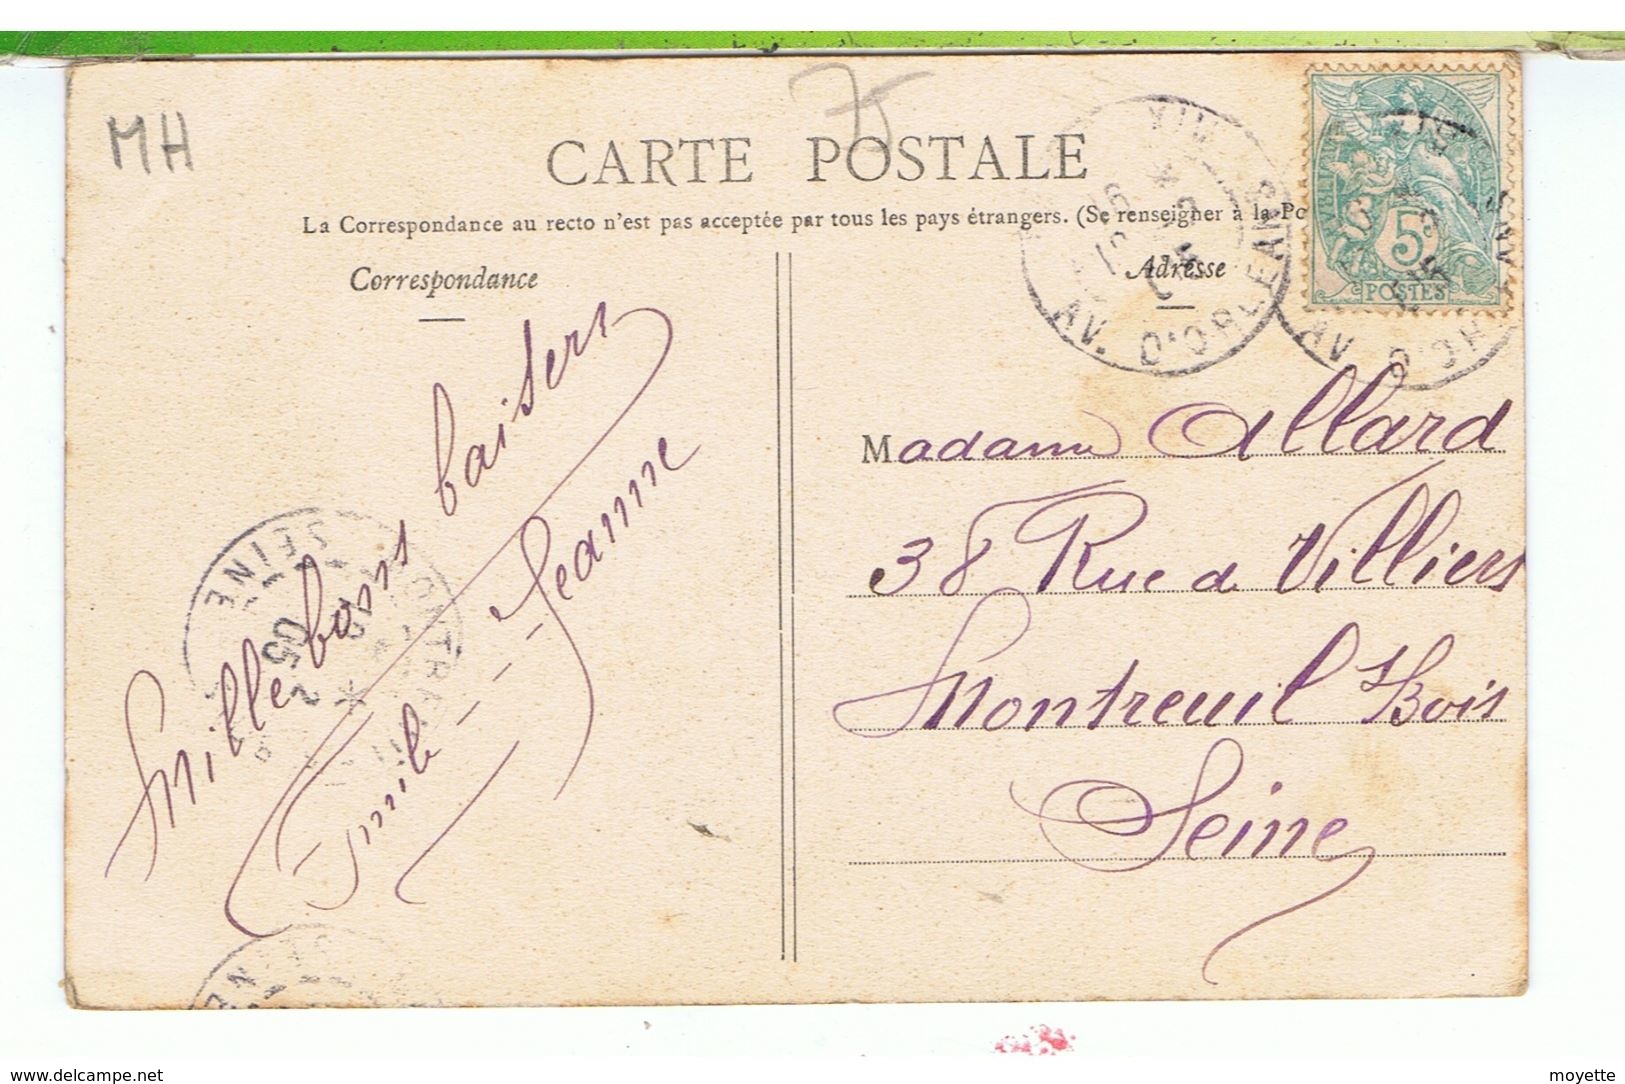 MH
75
CARTE POSTALE
La Correspondance au recto n'est pas acceptée par tous les pays étrangers. (Se renseigner à la Po
Correspondance
Adresse
AV. D'ORLEANS
5
POSTES
AV. D'
Mille bons baisers
Emile - Jeanne
Madame Allard
38 Rue de Villiers
Montreuil s/Bois
Seine
SEINE
05
www.delcampe.net
moyette